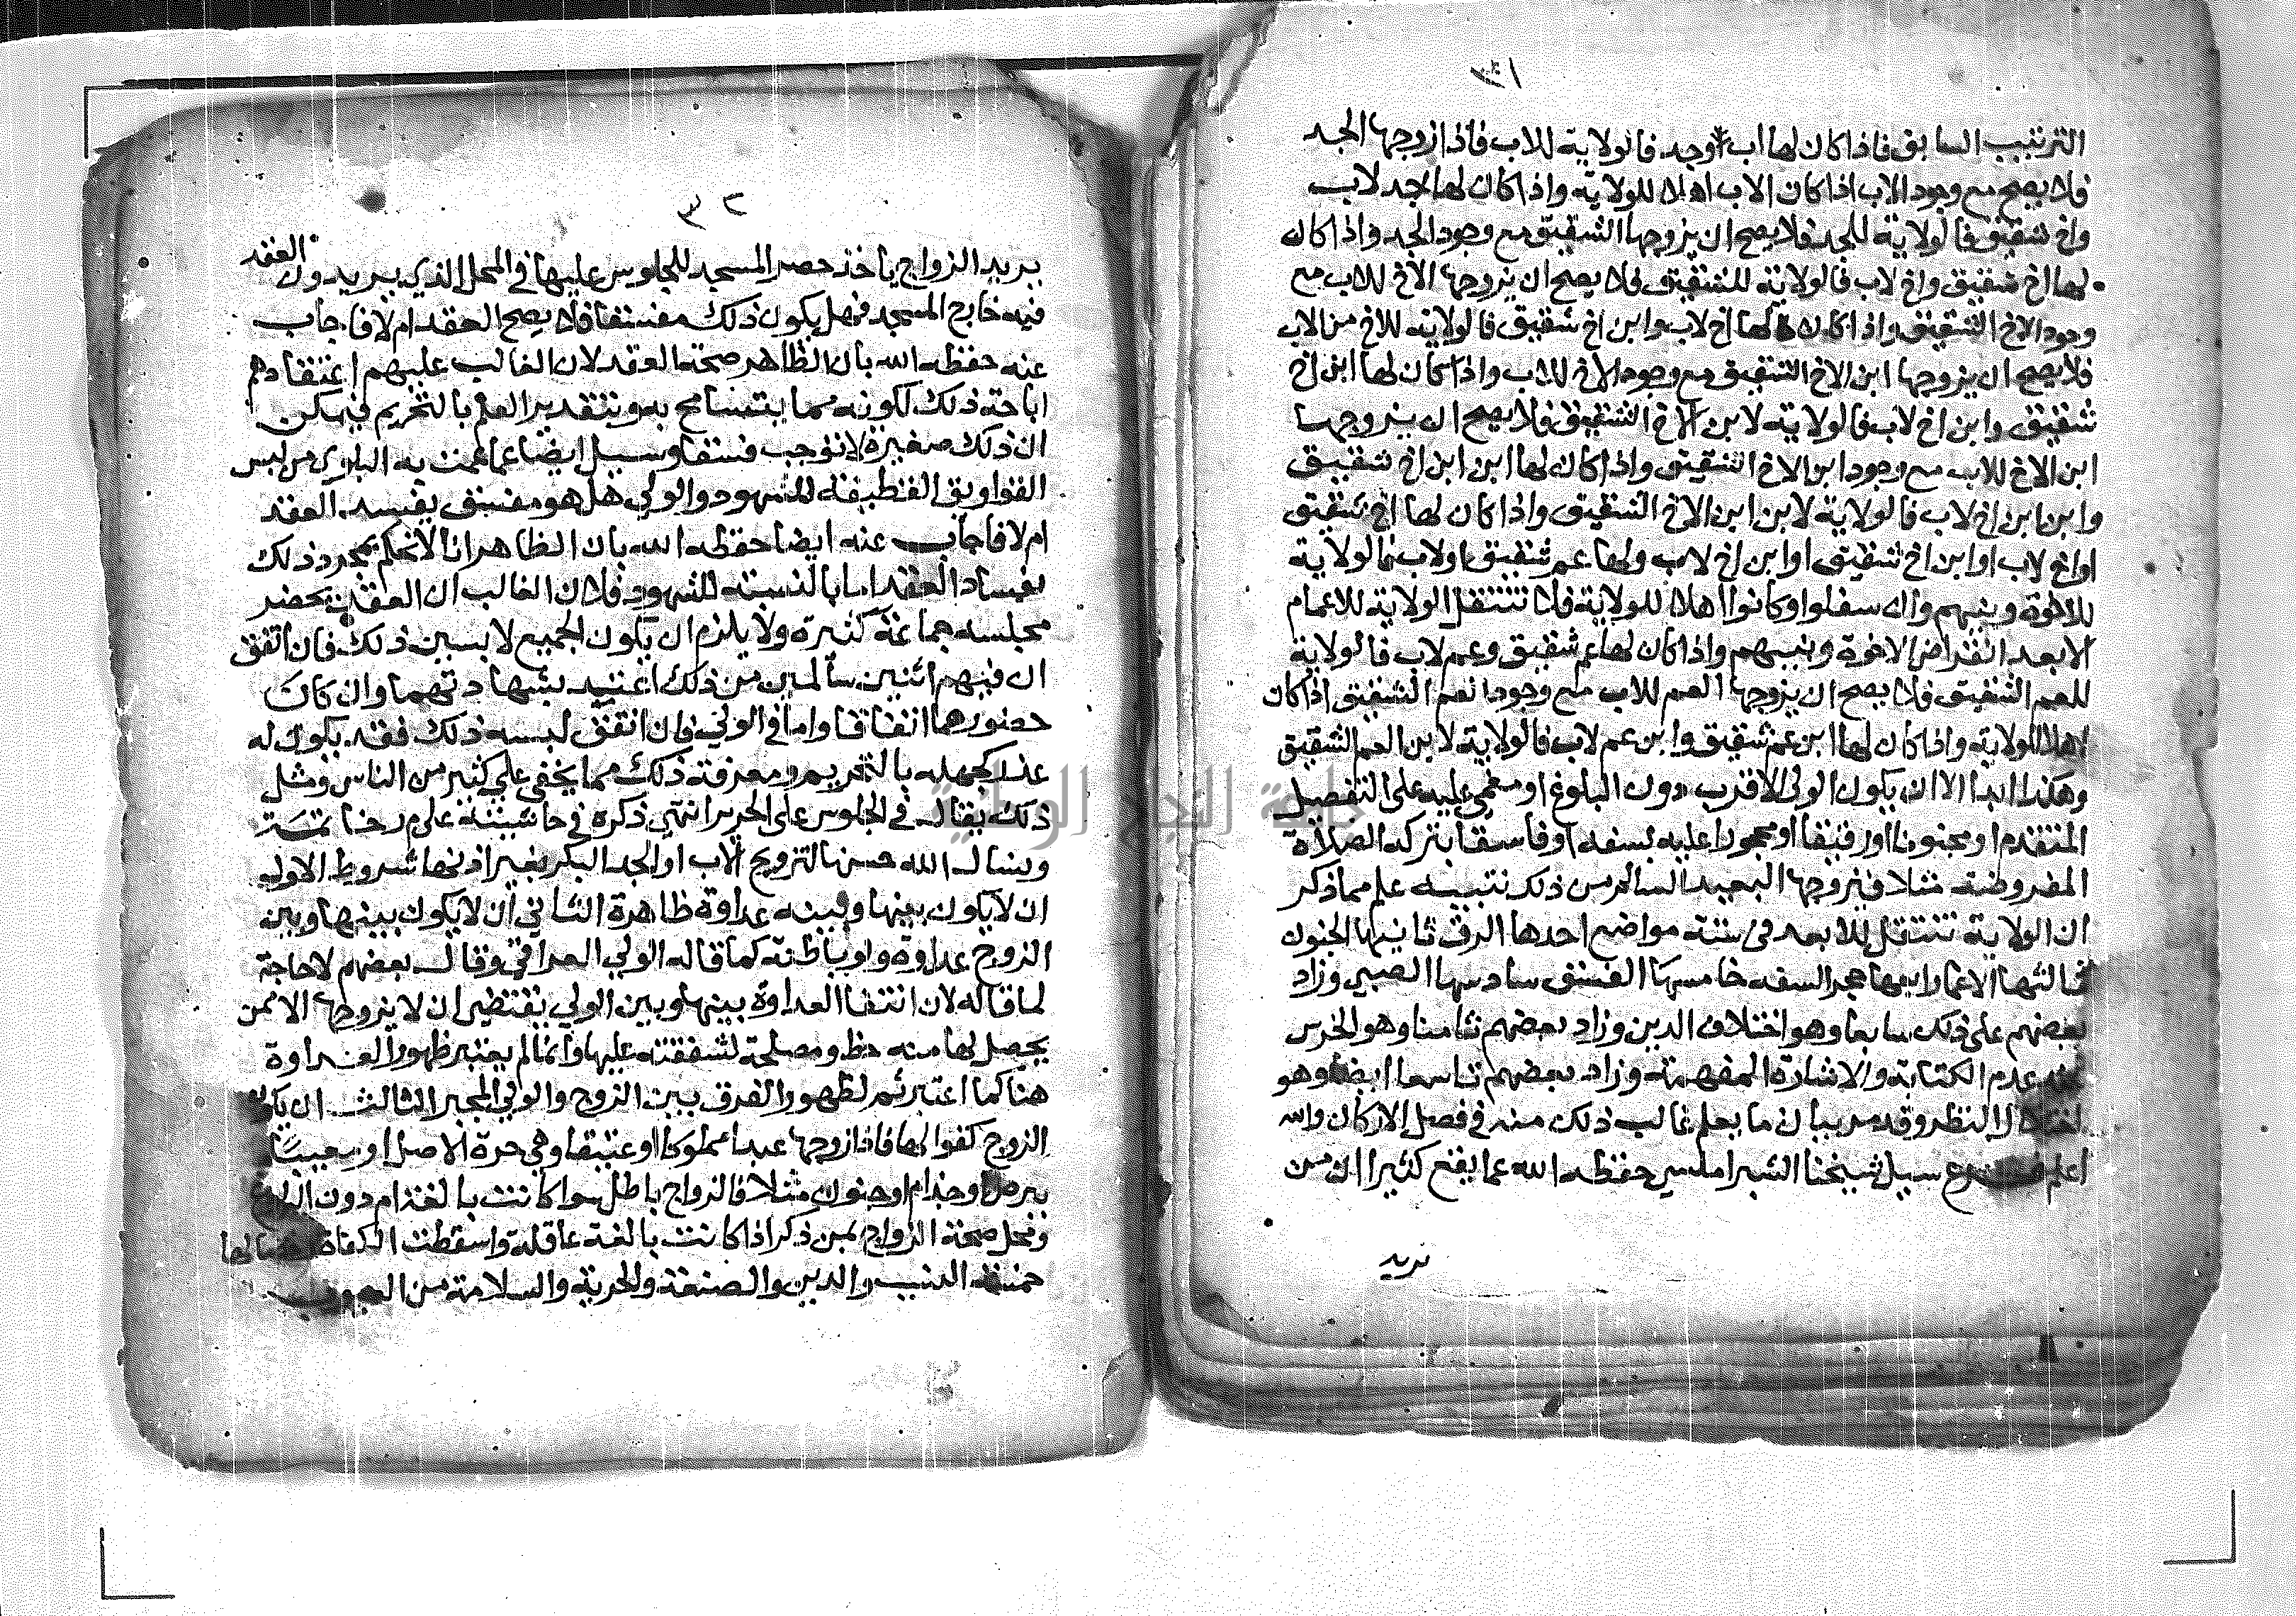 ٣١
الترتيب السابق فاذا كان لها اب وجد فالولاية للاب فاذا زوجها الجد
فلا يصح مع وجود الاب اذا كان الاب اهلا للولاية واذا كان لها جد لاب
واخ شقيق فالولاية للجد فلا يصح ان يزوجها الشقيق مع وجود الجد واذا كان
لها اخ شقيق واخ لاب فالولاية للشقيق فلا يصح ان يزوجها الاخ للاب مع
وجود الاخ الشقيق واذا كان لها اخ لاب وابن اخ شقيق فالولاية للاخ من الاب
فلا يصح ان يزوجها ابن الاخ الشقيق مع وجود الاخ للاب واذا كان لها ابن اخ
شقيق وابن اخ لاب فالولاية لابن الاخ الشقيق فلا يصح ان يزوجها
ابن الاخ للاب مع وجود ابن الاخ الشقيق واذا كان لها ابن ابن اخ شقيق
وابن ابن اخ لاب فالولاية لابن ابن الاخ الشقيق واذا كان لها اخ شقيق
او اخ لاب او ابن اخ شقيق او ابن اخ لاب ولها عم شقيق او لاب فالولاية
للاخوة وبنيهم وان سفلوا وكانوا اهلا للولاية فلا تنتقل الولاية للاعمام
الا بعد انقراض الاخوة وبنيهم واذا كان لها عم شقيق وعم لاب فالولاية
للعم الشقيق فلا يصح ان يزوجها العم للاب مع وجود العم الشقيق اذا كان
اهلا للولاية واذا كان لها ابن عم شقيق وابن عم لاب فالولاية لابن العم الشقيق
وهكذا ابدا الا ان يكون الولي الاقرب دون البلوغ او مغمي عليه على التفصيل
المتقدم او مجنونا او رقيقا او محجورا عليه بسفه او فاسقا بترك الصلاة
المفروضة مثلا فيزوجها البعيد السالم من ذلك تنبيه علم مما ذكر
ان الولاية تنتقل للابعد في ستة مواضع احدها الرق ثانيها الجنون
ثالثها الاغما رابعها حجر السفه خامسها الفسق سادسها الصبي وزاد
بعضهم على ذلك سابعا وهو اختلاف الدين وزاد بعضهم ثامنا وهو الخرس
عند عدم الكتابة والاشارة المفهمة وزاد بعضهم تاسعا ايضا وهو
اختلال النظر وقد مر بيان ما يعلم غالب ذلك منه في فصل الاركان والله
اعلم سيل شيخنا الشبراملسي حفظه الله عما يقع كثيرا ان من
يريد
٣٢
يريد الزواج ياخذ حصر المسجد للجلوس عليها في المحل الذي يريدون العقد
فيه خارج المسجد فهل يكون ذلك مفسقا فلا يصح العقد ام لا فاجاب
عنه حفظه الله بان الظاهر صحة العقد لان الغالب عليهم اعتقادهم
اباحة ذلك لكونه مما يتسامح به وبتقدير العلم بالتحريم فيمكن
ان ذلك صغيرة لا توجب فسقا وسيل ايضا عما عمت به البلوى من لبس
القواويق القطيفة للشهود والولي هل هو مفسق يفسد العقد
ام لا فاجاب عنه ايضا حفظه الله بان الظاهر انا لا نحكم بمجرد ذلك
بفساد العقد اما بالنسبة للشهود فلان الغالب ان العقد يحضر
مجلسه جماعة كثيرة ولا يلزم ان يكون الجميع لابسين ذلك فان اتفق
ان فيهم اثنين سالمين من ذلك اعتد بشهادتهما وان كان
حضورهما اتفاقا واما في الولي فان اتفق لبسه ذلك فقد يكون له
عذر كجهله بالتحريم ومعرفة ذلك مما يخفى على كثير من الناس ومثل
ذلك يقال في الجلوس على الحرير انتهى ذكره في حاشيته على م ر خاتمة
ونسال الله حسنها لتزويج الاب او الجد البكر بغير اذنها شروط الاول
ان لا يكون بينها وبينه عداوة ظاهرة الثاني ان لا يكون بينها وبين
الزوج عداوة ولو باطنة كما قاله الولي العراقي وقال بعضهم لا حاجة
لما قاله لان انتفا العداوة بينها وبين الولي يقتضي ان لا يزوجها الا ممن
يحصل لها منه حظ ومصلحة لشفقته عليها وانما لم يعتبر ظهور العداوة
هنا كما اعتبر ثم لظهور الفرق بين الزوج والولي المجبر الثالث ان يكون
الزوج كفوا لها فاذا زوجها عبدا مملوكا او عتيقا وهي حرة الاصل او معيبا
ببرص او جذام او جنون مثلا فالزواج باطل سوا كانت بالغة ام دون البلوغ
ومحل صحة الزواج بمن ذكر اذا كانت بالغة عاقلة واسقطت الكفاة
خمسة النسب والدين والصنعة والحرية والسلامة من العيوب
جامعة النجاح الوطنية